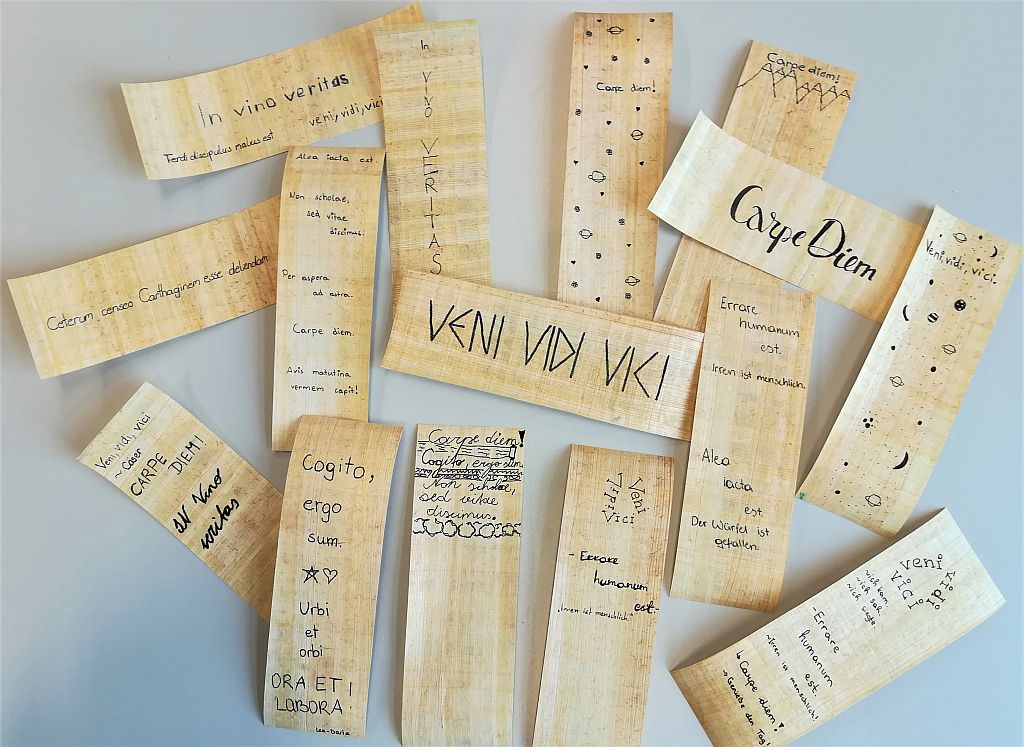 In vino veritas
veni, vidi, vici
Terdi discipulus malus est
In
VINO
VERITAS
Carpe diem!
Carpe diem!
Carpe Diem
Veni, vidi, vici.
Alea iacta est.
Non scholae,
sed vitae
discimus.
Per aspera
ad astra.
Carpe diem.
Avis matutina
vermem capit!
Ceterum censeo Carthaginem esse delendam
VENI VIDI VICI
Errare
humanum
est.
Irren ist menschlich.
Alea
iacta
est.
Der Würfel ist
gefallen.
Veni, vidi, vici
~ Caser
CARPE DIEM!
IN Vino
veritas
Cogito,
ergo
sum.
Urbi
et
orbi
ORA ET
LABORA
Lea-Daria
Carpe diem!
Cogito, ergo sum.
Non scholae,
sed vitae
discimus.
Veni
Vidi
Vici
- Errare
humanum
est.-
„Irren ist menschlich“
veni
vidi
vici
~ich kam
~ich sah
~ich siegte.
-Errare
humanum
est.
~Irren ist menschlich!
↳ Carpe diem!
→ Genieße den Tag!